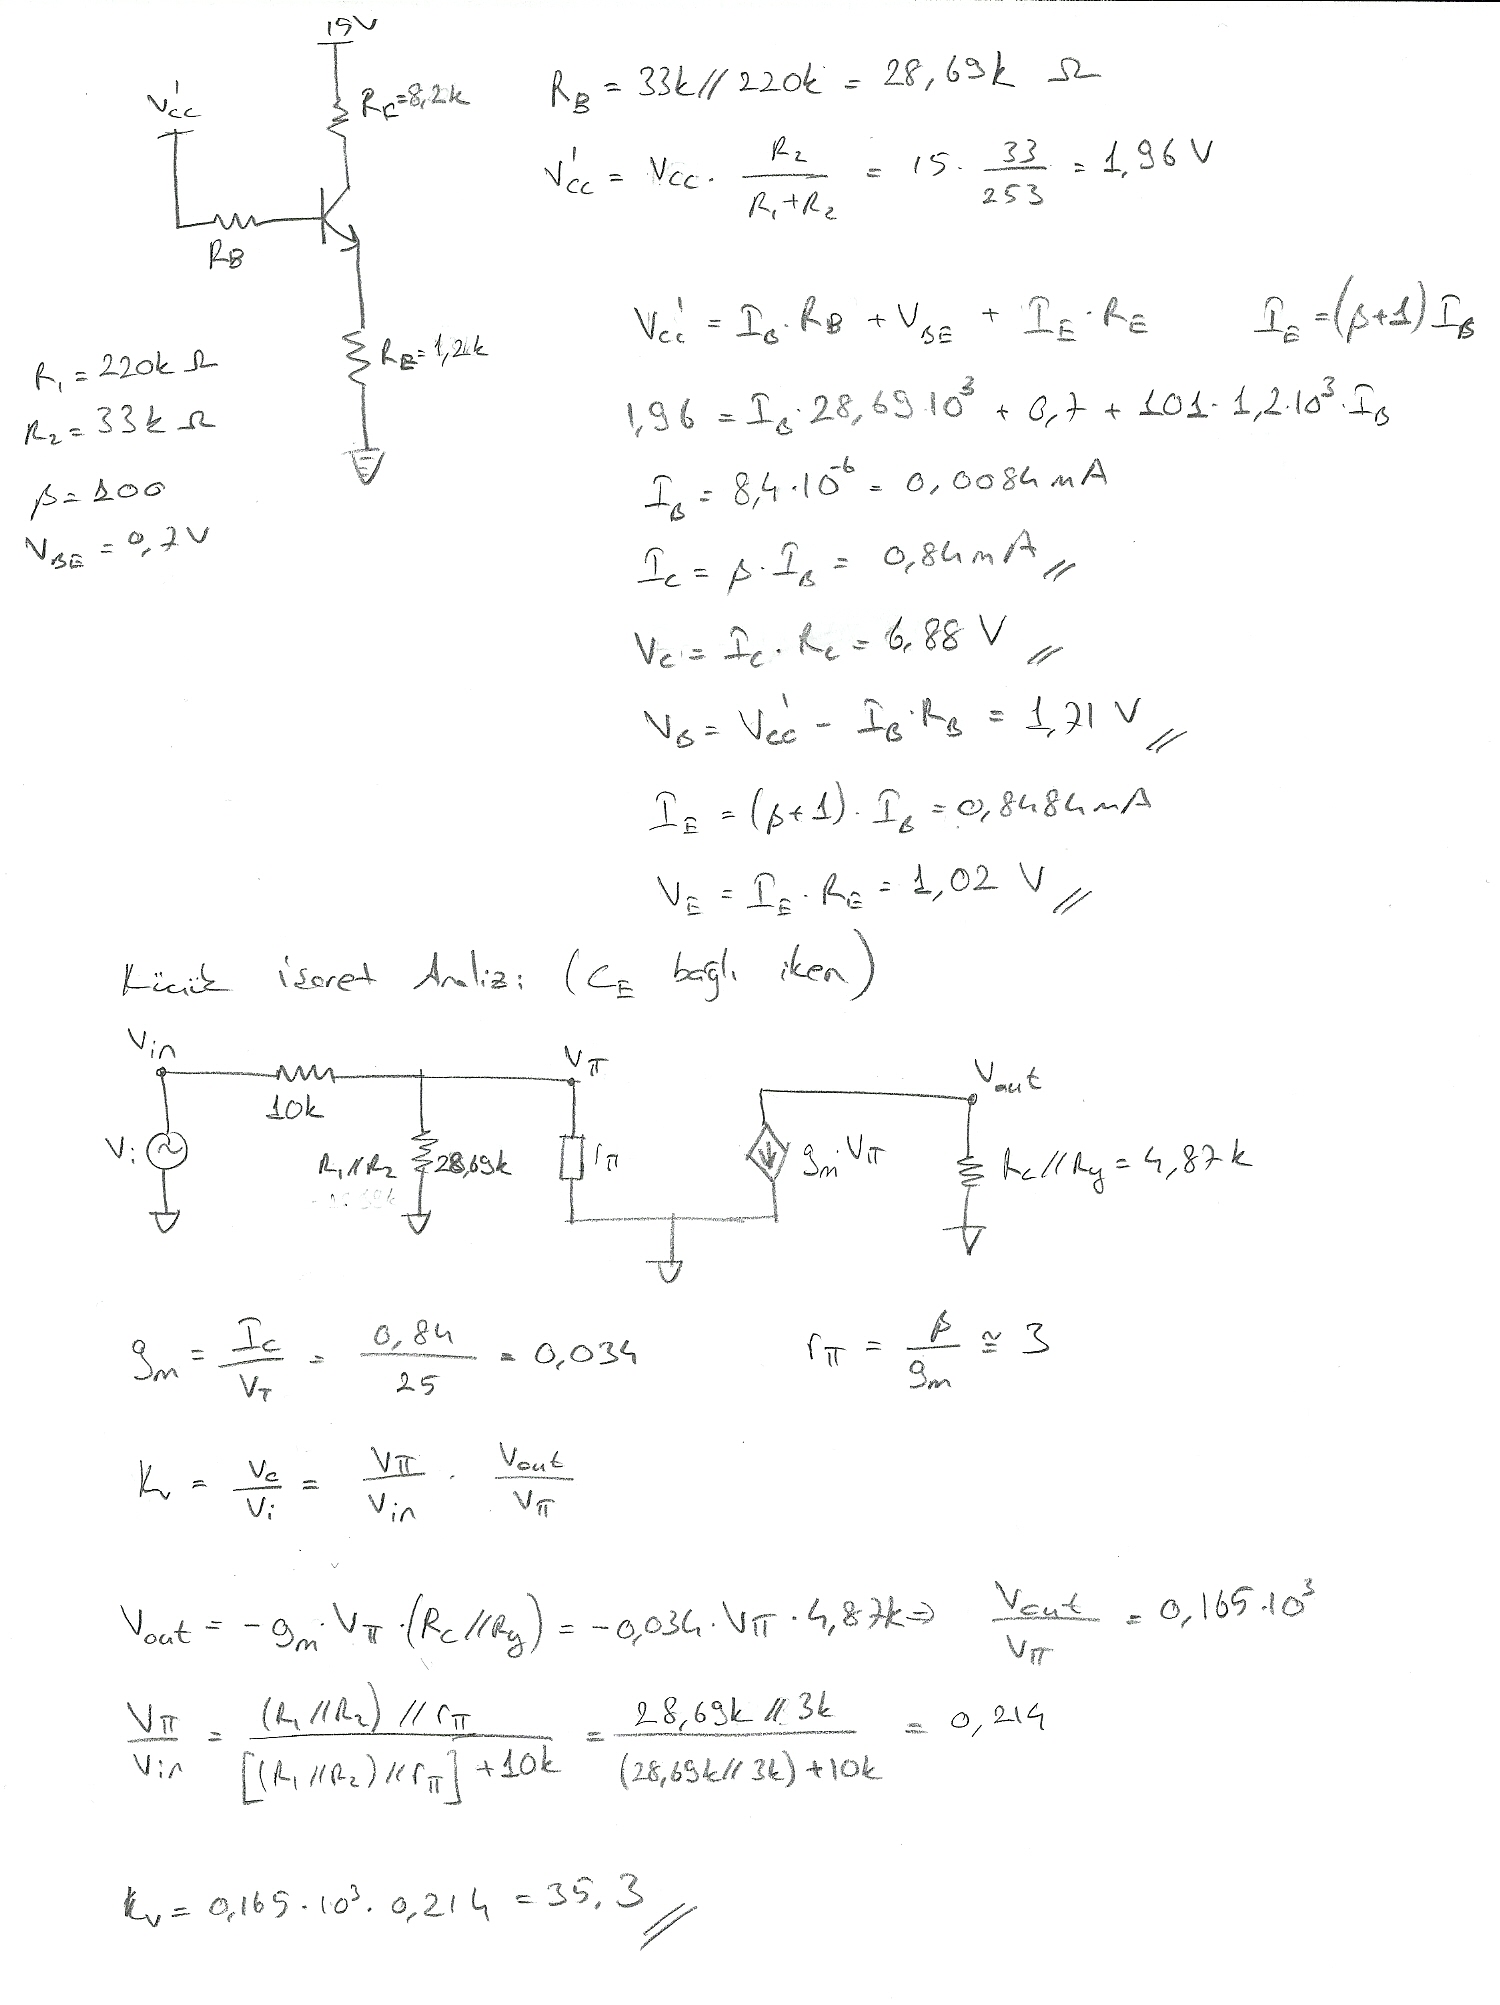 15V
V'cc
Rc=8,2k
RB
RE=1,2k
R₁ = 220k Ω
R₂ = 33k Ω
β = 100
VBE = 0,7V
RB = 33k // 220k = 28,69k Ω
V'cc = Vcc . R₂ / (R₁+R₂) = 15 . 33/253 = 1,96 V
Vcc' = IB.RB + VBE + IE.RE IE = (β+1) IB
1,96 = IB.28,69.10³ + 0,7 + 101.1,2.10³.IB
IB = 8,4.10⁻⁶ = 0,0084 mA
Ic = β.IB = 0,84 mA //
Vc = Ic.Rc = 6,88 V //
VB = Vcc' - IB.RB = 1,71 V //
IE = (β+1).IB = 0,8484 mA
VE = IE.RE = 1,02 V //
Küçük işaret Analizi (CE bağlı iken)
Vin
10k
Vπ
Vout
Vi
R₁//R₂
28,69k
rπ
gm Vπ
Rc//Ry = 4,87k
gm = Ic/VT = 0,84/25 = 0,034 rπ = β/gm ≅ 3
Kv = Vc/Vi = Vπ/Vin . Vout/Vπ
Vout = -gm.Vπ.(Rc//Ry) = -0,034.Vπ.4,87k ⇒ Vout/Vπ = 0,165.10³
Vπ/Vin = (R₁//R₂)//rπ / [(R₁//R₂)//rπ]+10k = 28,69k // 3k / (28,69k//3k)+10k = 0,214
Kv = 0,165.10³.0,214 = 35,3 //